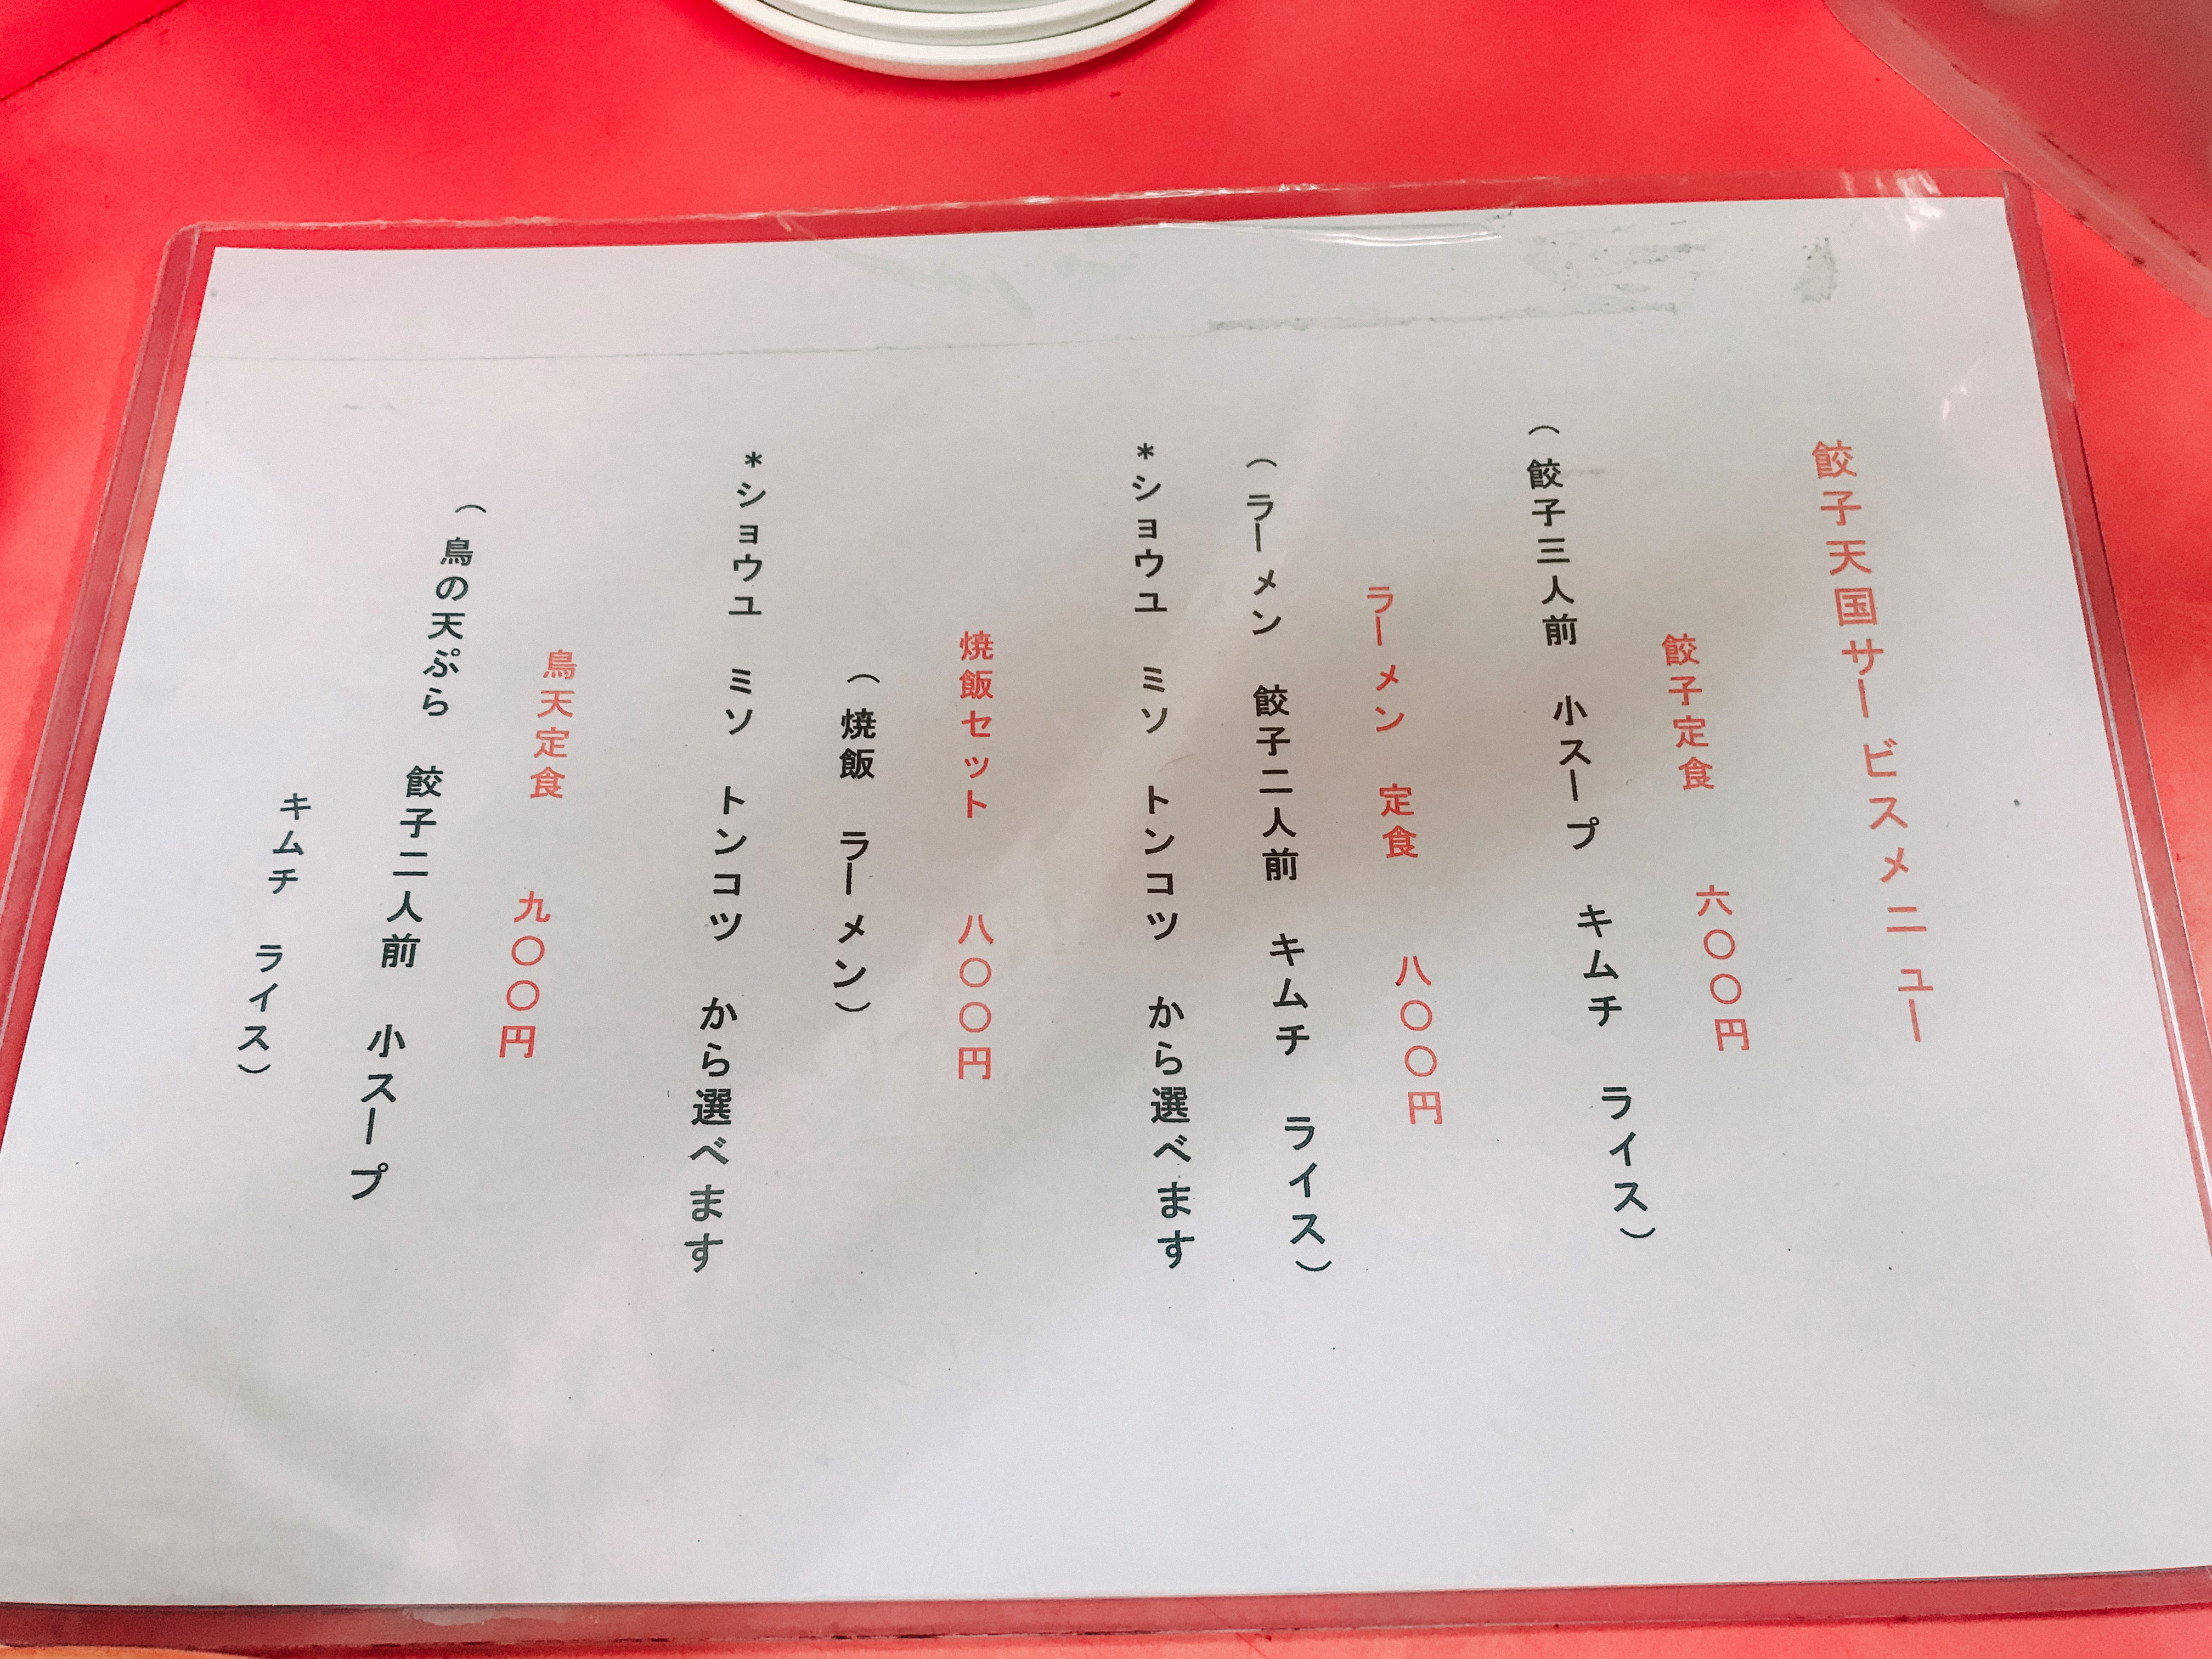 餃子天国サービスメニュー
餃子定食　六〇〇円
（餃子三人前　小スープ　キムチ　ライス）
ラーメン　定食　八〇〇円
（ラーメン　餃子二人前　キムチ　ライス）
*ショウユ　ミソ　トンコツ　から選べます
焼飯セット　八〇〇円
（焼飯　ラーメン）
*ショウユ　ミソ　トンコツ　から選べます
鳥天定食　九〇〇円
（鳥の天ぷら　餃子二人前　小スープ
キムチ　ライス）